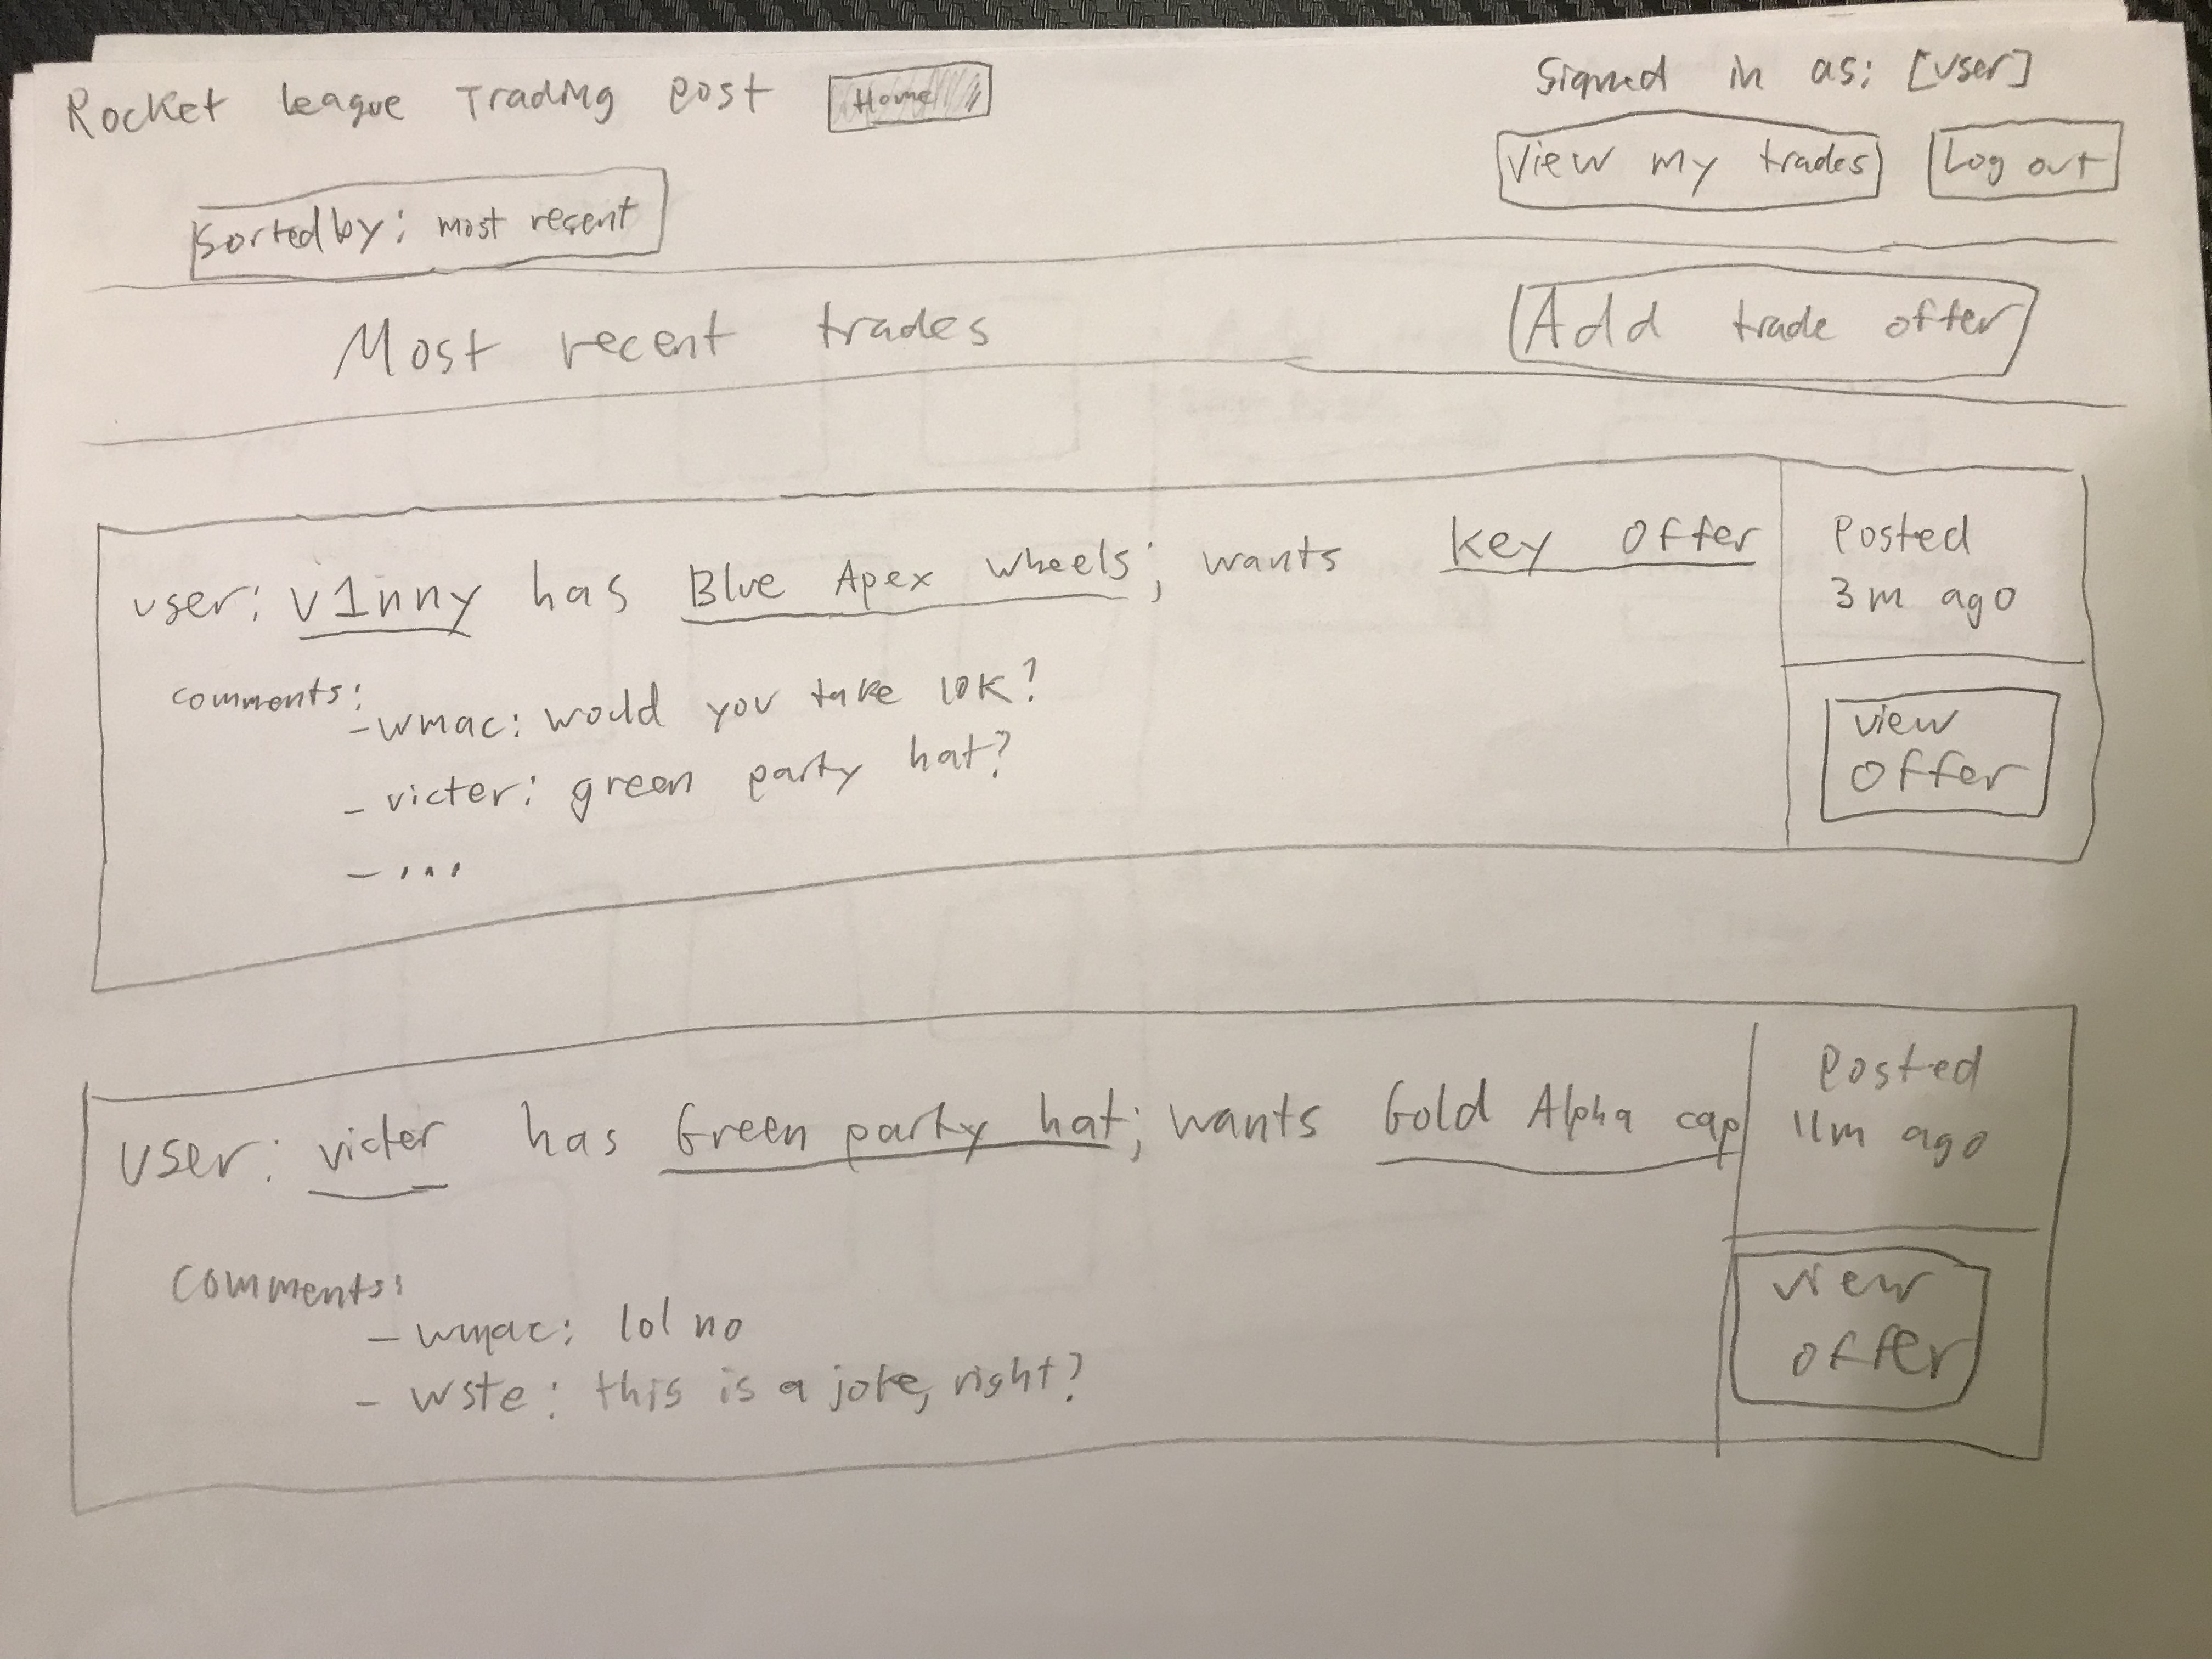 Rocket League Trading Post Home
Signed in as: [user]
View my trades Log out
Sorted by: most recent
Most recent trades
Add trade offer
user: v1nny has Blue Apex wheels; wants key offer
Posted
3m ago
comments:
- wmac: would you take 10K?
- victer: green party hat?
- ...
view
offer
user: victer has Green party hat; wants Gold Alpha cap
Posted
11m ago
comments:
- wmac: lol no
- wste: this is a joke, right?
view
offer